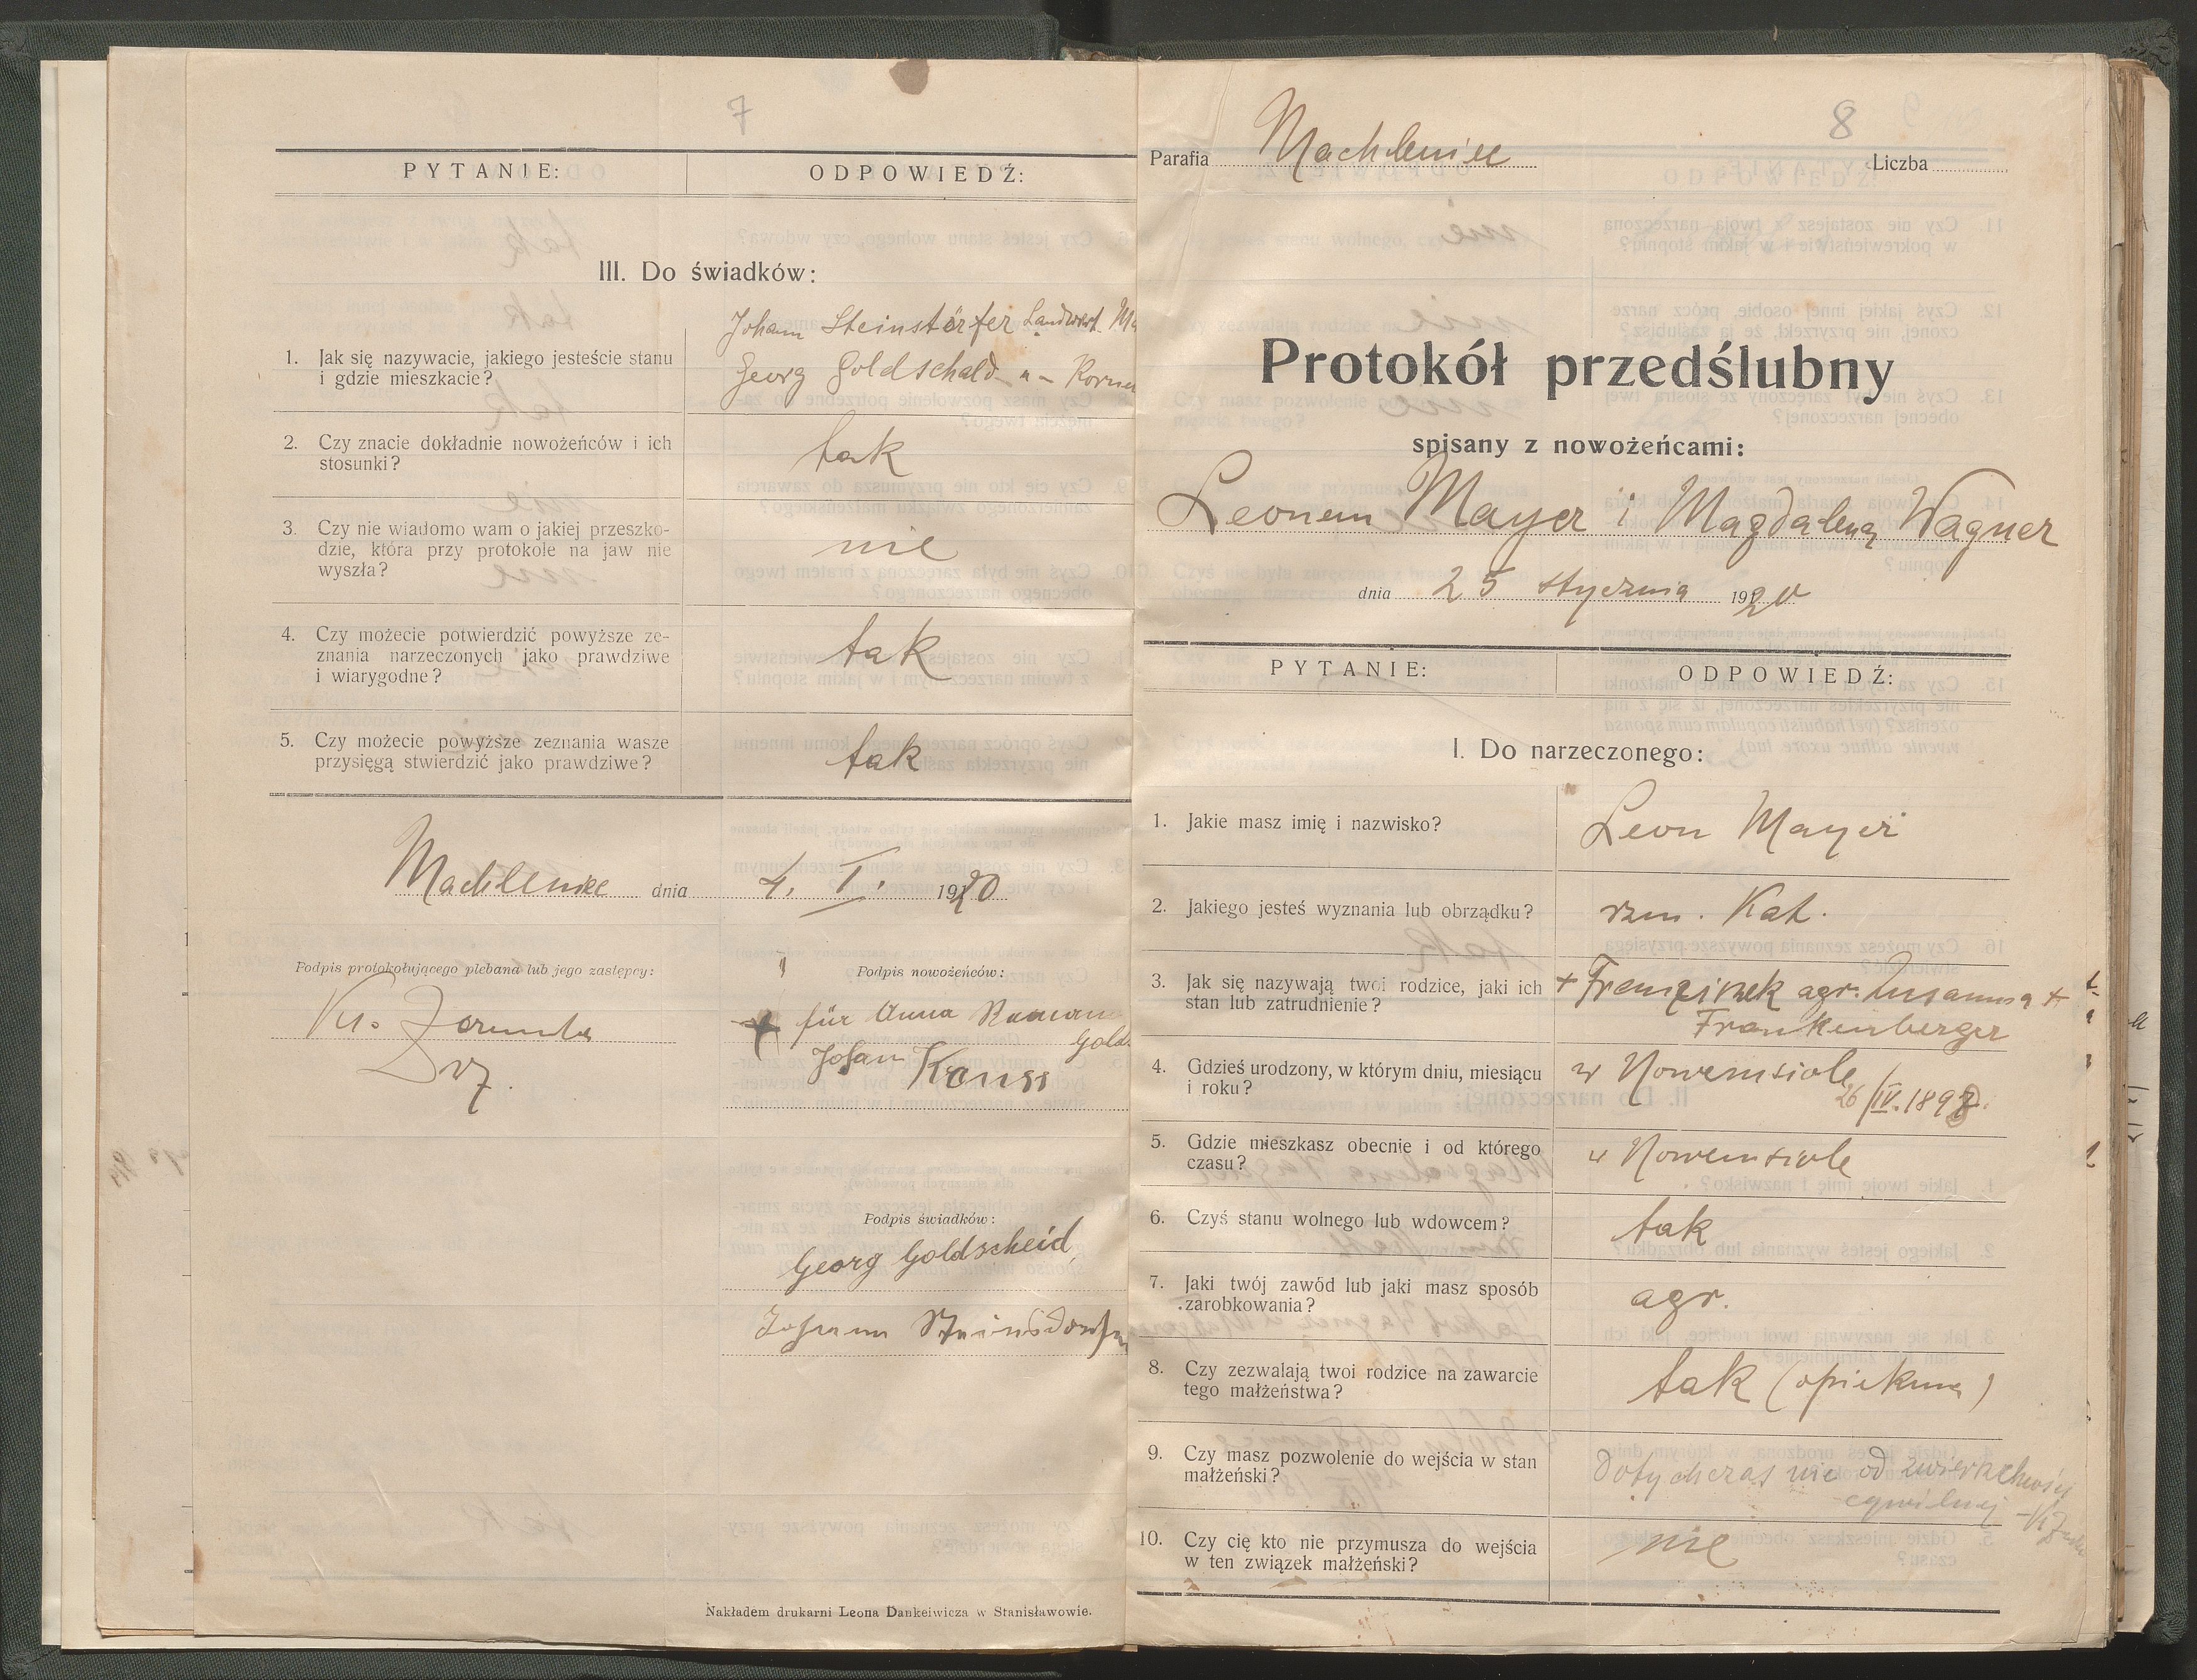 7
PYTANIE: ODPOWIEDŹ:
III. Do świadków:
Johann Steinstörfer Landwirt
1. Jak się nazywacie, jakiego jesteście stanu
i gdzie mieszkacie?
Georg Goldschald
2. Czy znacie dokładnie nowożeńców i ich
stosunki?
tak
3. Czy nie wiadomo wam o jakiej przeszko-
dzie, która przy protokole na jaw nie
wyszła?
nie
4. Czy możecie potwierdzić powyższe ze-
znania narzeczonych jako prawdziwe
i wiarygodne?
tak
5. Czy możecie powyższe zeznania wasze
przysięgą stwierdzić jako prawdziwe?
tak
Machleniec dnia 4. I. 1920
Podpis protokołującego plebana lub jego zastępcy:
Ks.
Podpis nowożeńców:
+ für Anna
Johann Krauss
Podpis świadków:
Georg Goldscheid
Johann
Nakładem drukarni Leona Dankeiwicza w Stanisławowie.
8
Parafia Machleniec Liczba
Protokół przedślubny
spisany z nowożeńcami:
Leonem Mayer i Magdaleną Wagner
dnia 25 stycznia 1920
PYTANIE: ODPOWIEDŹ:
I. Do narzeczonego:
1. Jakie masz imię i nazwisko? Leon Mayer
2. Jakiego jesteś wyznania lub obrządku? rzm. Kat.
3. Jak się nazywają twoi rodzice, jaki ich
stan lub zatrudnienie?
+ Franciszek agr. Zusanna +
Frankenberger
4. Gdzieś urodzony, w którym dniu, miesiącu
i roku?
w Nowemsiole
26/IV. 1898.
5. Gdzie mieszkasz obecnie i od którego
czasu?
w Nowemsiole
6. Czyś stanu wolnego lub wdowcem? tak
7. Jaki twój zawód lub jaki masz sposób
zarobkowania?
agr.
8. Czy zezwalają twoi rodzice na zawarcie
tego małżeństwa?
tak (opiekun)
9. Czy masz pozwolenie do wejścia w stan
małżeński?
Dotychczas nie od zwierzchności
cywilnej
10. Czy cię kto nie przymusza do wejścia
w ten związek małżeński?
nie